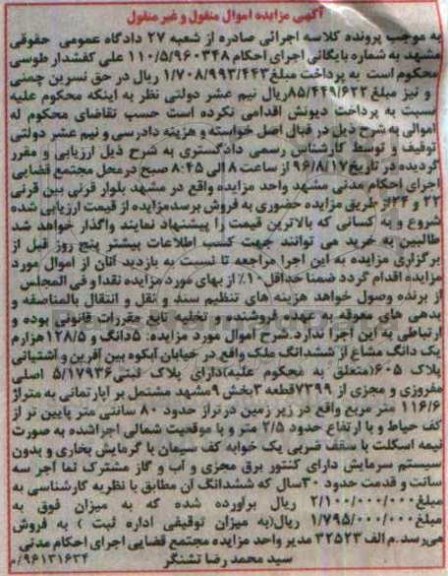 آگهی مزایده اموال منقول و غیر منقول
به موجب پرونده کلاسه اجرائی صادره از شعبه ۲۷ دادگاه عمومی حقوقی
مشهد به شماره بایگانی اجرای احکام ۱۱۰/۵/۹۶۰۳۴۸ علی کفشدار طوسی
محکوم است به پرداخت مبلغ ۱/۷۰۸/۹۹۳/۴۴۳ ریال در حق نسرین چمنی
و نیز مبلغ ۸۵/۴۴۹/۶۲۳ ریال نیم عشر دولتی نظر به اینکه محکوم علیه
نسبت به پرداخت دیونش اقدامی نکرده است حسب تقاضای محکوم له
اموالی به شرح ذیل در قبال اصل خواسته و هزینه دادرسی و نیم عشر دولتی
توقیف و توسط کارشناس رسمی دادگستری به شرح ذیل ارزیابی و مقرر
گردیده در تاریخ ۹۶/۸/۱۷ از ساعت ۸ الی ۸:۴۵ صبح در محل مجتمع قضایی
اجرای احکام مدنی مشهد واحد مزایده واقع در مشهد بلوار قرنی بین قرنی
۲۲ و ۲۴ از طریق مزایده حضوری به فروش برسد مزایده از قیمت ارزیابی شده
شروع و به کسانی که بالاترین قیمت را پیشنهاد نمایند واگذار خواهد شد
طالبین به خرید می توانند جهت کسب اطلاعات بیشتر پنج روز قبل از
برگزاری مزایده به این اجرا مراجعه تا نسبت به بازدید آنان از اموال مورد
مزایده اقدام گردد ضمنا حداقل ۱۰٪ از بهای مورد مزایده نقدا و فی المجلس
از برنده وصول خواهد هزینه های تنظیم سند و نقل و انتقال بالمناصفه و
بدهی های معوقه به عهده فروشنده و تخلیه تابع مقررات قانونی بوده و
ارتباطی به این اجرا ندارد. شرح اموال مورد مزایده: ۵ دانگ و ۱۲۸/۵ هزارم
یک دانگ مشاع از ششدانگ ملک واقع در خیابان آبکوه بین آفرین و آشتیانی
پلاک ۶۰۵ (متعلق به محکوم علیه) دارای پلاک ثبتی ۵/۱۷۹۳۶ اصلی
مفروزی و مجزی از ۷۳۹۹ قطعه ۳ بخش ۹ مشهد مشتمل بر آپارتمانی به متراژ
۱۱۶/۶ متر مربع واقع در زیر زمین در تراز حدود ۸۰ سانتی متر پایین تر از
کف حیاط و با ارتفاع حدود ۲/۵ متر و با موقعیت شمالی اجرا شده به صورت
نیمه اسکلت با سقف ضربی یک خوابه کف سیمان با گرمایش بخاری و بدون
سیستم سرمایش دارای کنتور برق مجزی و آب و گاز مشترک نما آجر سه
سانت و قدمت حدود ۳۰ سال که ششدانگ آن مطابق با نظریه کارشناسی به
مبلغ ۲/۱۰۰/۰۰۰/۰۰۰ ریال برآورده شده که به میزان فوق به
مبلغ ۱/۷۹۵/۰۰۰/۰۰۰ ریال (به میزان توقیفی اداره ثبت) به فروش
می‌رسد. م الف ۳۲۵۲۳ مدیر واحد مزایده مجتمع قضایی اجرای احکام مدنی
سید محمد رضا تشنگر ۹۶۱۳۱۶۳۴/م